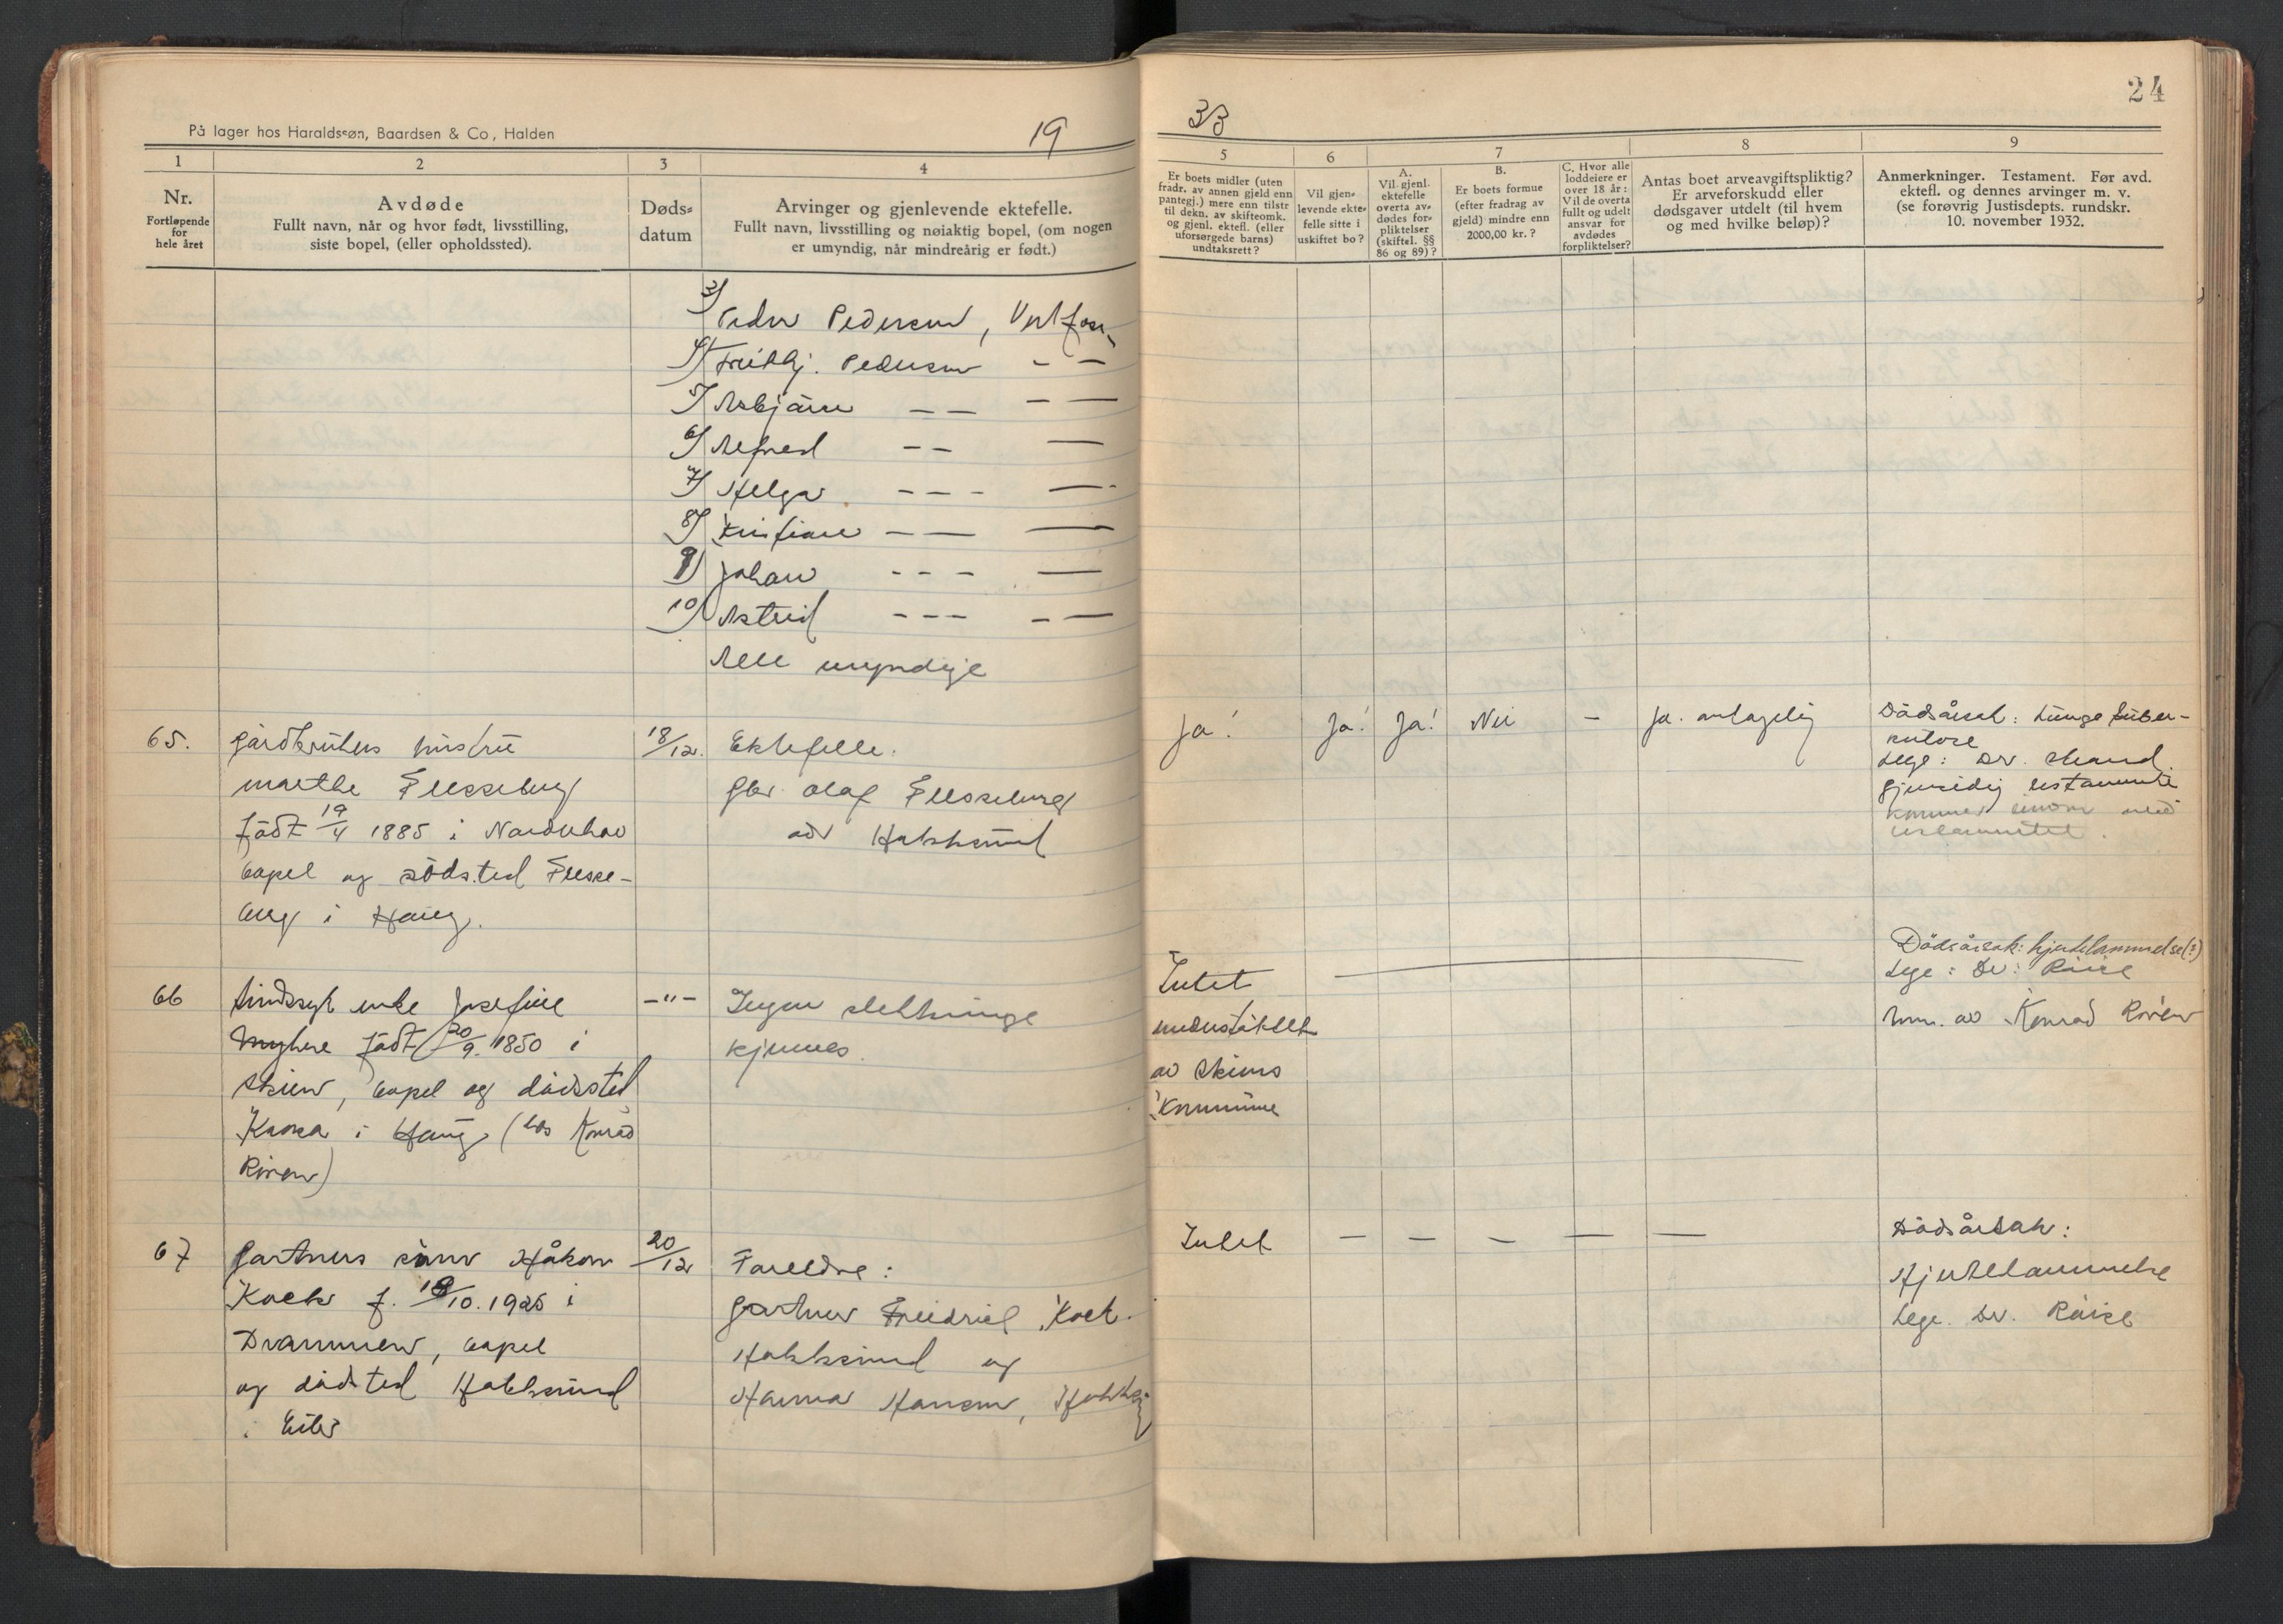 På lager hos Haraldssøn, Baardsen & Co, Halden
19
1
2
3
4
Nr.
Fortløpende
for
hele året
Avdøde
Fullt navn, når og hvor født, livsstilling,
siste bopel, (eller opholdssted).
Døds=
datum
Arvinger og gjenlevende ektefelle.
Fullt navn, livsstilling og nøiaktig bopel, (om nogen
er umyndig, når mindreårig er født.)
3) Peder Pedersen,
4) Frithj. Pedersen - -
5) Asbjørn - - - -
6) Alfred - - -
7) Helga - - - -
8) Kristian - - -
9) Johan - - - -
10) Astrid - - - - -
Alle umyndige
65.
Gårdbrukers hustru
Marthe Flesseberg
født 19/4 1885 i Norderhov
bopel og dødsted Flesse-
berg i Haug.
18/12.
Ektefelle:
Gbr. Olaf Flesseberg
adr Hokksund
66
Sindssyk enke Josefine
Myhre født 20/9. 1850 i
Skien, bopel og dødsted
i Haug (hos Konrad
Roven)
-"-
Ingen slektninge
kjennes.
67
Gartners sønn Håkon
Koch f. 18/10. 1925 i
Drammen, bopel
og dødsted Hokksund
i Eiker
20/12
Foreldre:
Gartner Freidrich Koch.
Hokksund og
Hanna Hansen,
33
24
5
6
7
8
9
Er boets midler (uten
fradr. av annen gjeld enn
pantegj.) mere enn tilstr
til dekn. av skifteomk.
og gjenl. ektefl. (eller
uforsørgede barns)
undtaksrett?
Vil gjen=
levende ekte=
felle sitte i
uskiftet bo?
A.
Vil gjenl.
ektefelle
overta av=
dødes for=
pliktelser
(skiftel. §§
86 og 89)?
B.
Er boets formue
(efter fradrag av
gjeld) mindre enn
2000,00 kr.?
C. Hvor alle
loddeiere er
over 18 år:
Vil de overta
fullt og udelt
ansvar for
avdødes
forpliktelser?
Antas boet arveavgiftspliktig?
Er arveforskudd eller
dødsgaver utdelt (til hvem
og med hvilke beløp)?
Anmerkninger. Testament. Før avd.
ektefl. og dennes arvinger m. v.
(se forøvrig Justisdepts. rundskr.
10. november 1932.
Ja! Ja! Ja! Nei - Ja. antagelig
Dødsårsak: Lunge tuber-
kulose
Lege: Dr. Strand.
Gjensidig testamente
kommer innom med
testamentet.
Intet
understøttet
av Skiens
Kommune
Dødsårsak: hjertelammelse(?)
Lege: Dr.
Anm. av Konrad Roven
Intet - - - - -
Dødsårsak:
Hjertelammelse
Lege. Dr.